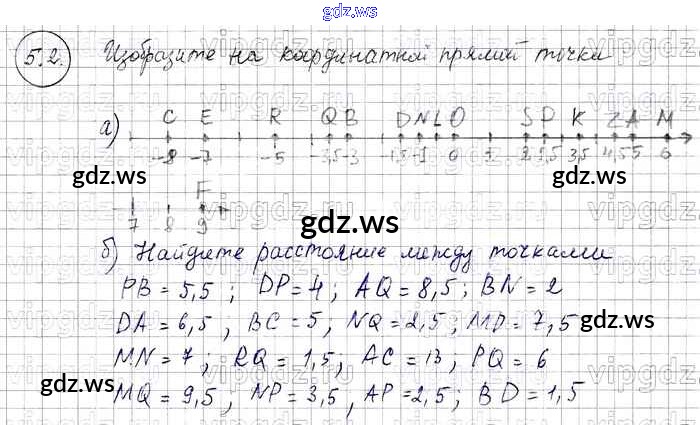 gdz.ws
5.2. Изобразите на координатной прямой точки
а) C E R Q B D N L O S P K Z A M
-8 -7 -5 -3,5 -3 -1,5 -1 0 1 2 2,5 3,5 4,5 5 6
gdz.ws
gdz.ws
F
7 8 9
gdz.ws
б) Найдите расстояние между точками
PB = 5,5 ; DP = 4 ; AQ = 8,5 ; BN = 2
DA = 6,5 ; BC = 5 ; NQ = 2,5 ; MD = 7,5
MN = 7 ; RQ = 1,5 ; AC = 13 ; PQ = 6
gdz.ws
gdz.ws
MQ = 9,5 ; NP = 3,5 , AP = 2,5 ; BD = 1,5
gdz.ws